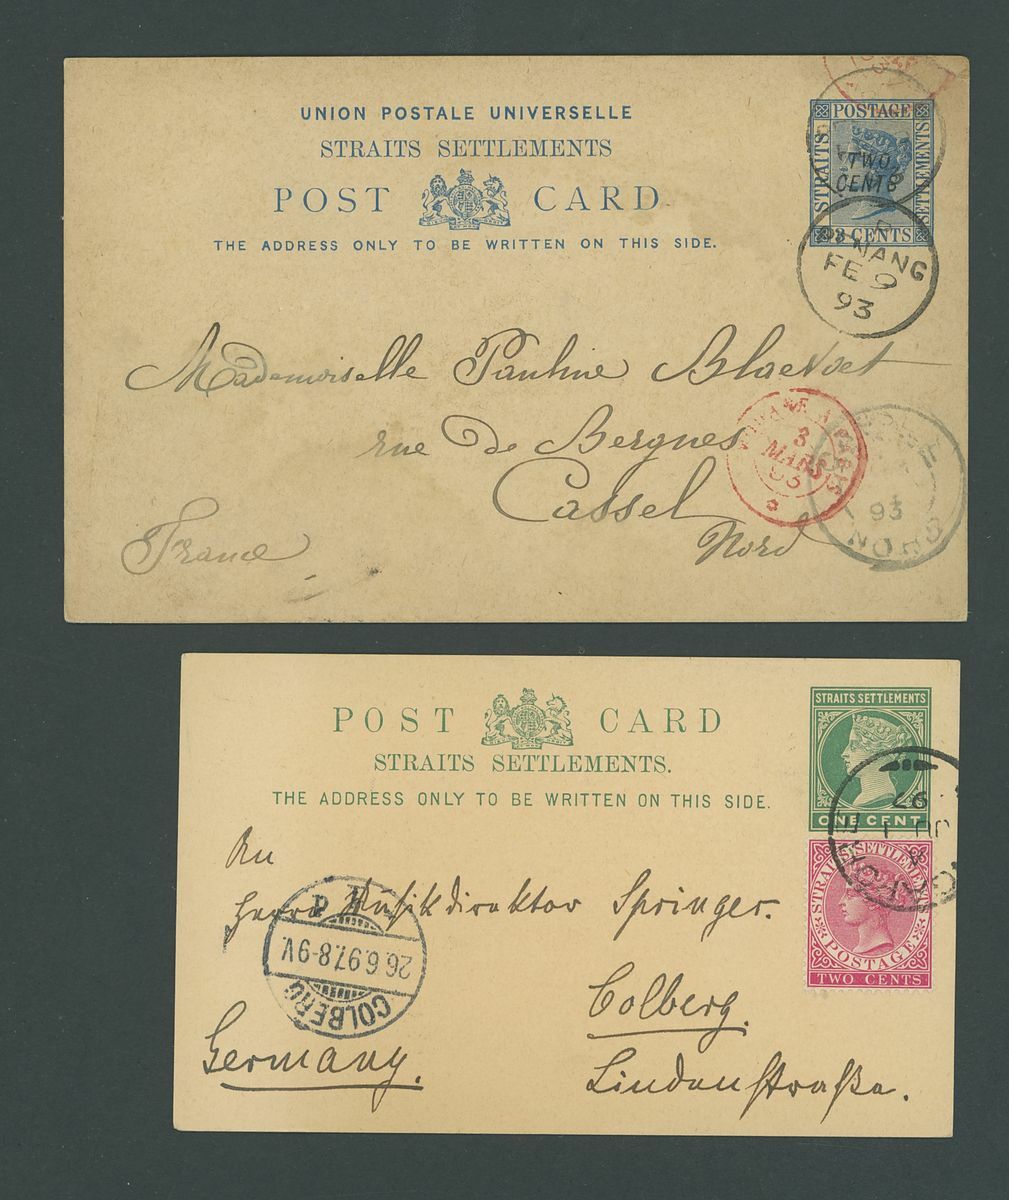 UNION POSTALE UNIVERSELLE
STRAITS SETTLEMENTS
POST CARD
THE ADDRESS ONLY TO BE WRITTEN ON THIS SIDE.
POSTAGE
STRAITS
SETTLEMENTS
TWO
CENTS
CENTS
PENANG
FE 9
93
Mademoiselle Pauline Blaevoet
rue de Bergues
Cassel
Nord
France
3
MARS
93
93
NORD
POST CARD
STRAITS SETTLEMENTS.
THE ADDRESS ONLY TO BE WRITTEN ON THIS SIDE.
STRAITS SETTLEMENTS
ONE CENT
STRAITS SETTLEMENTS
POSTAGE
TWO CENTS
97
An
Herrn Musikdirektor Springer.
Colberg.
Lindenstraße.
Germany.
COLBERG
26.6.97.8-9V.